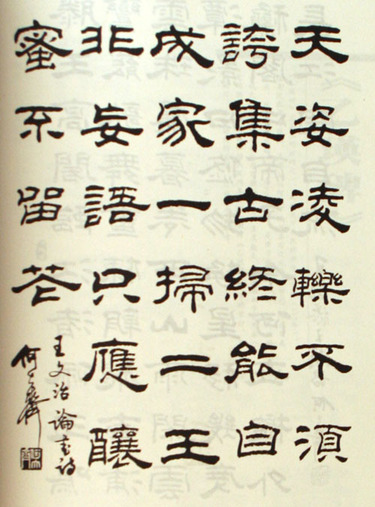 天姿凌轢不須
誇集古終能自
成家一掃二王
非妄語只應釀
蜜不留花
王文治論書詩
何